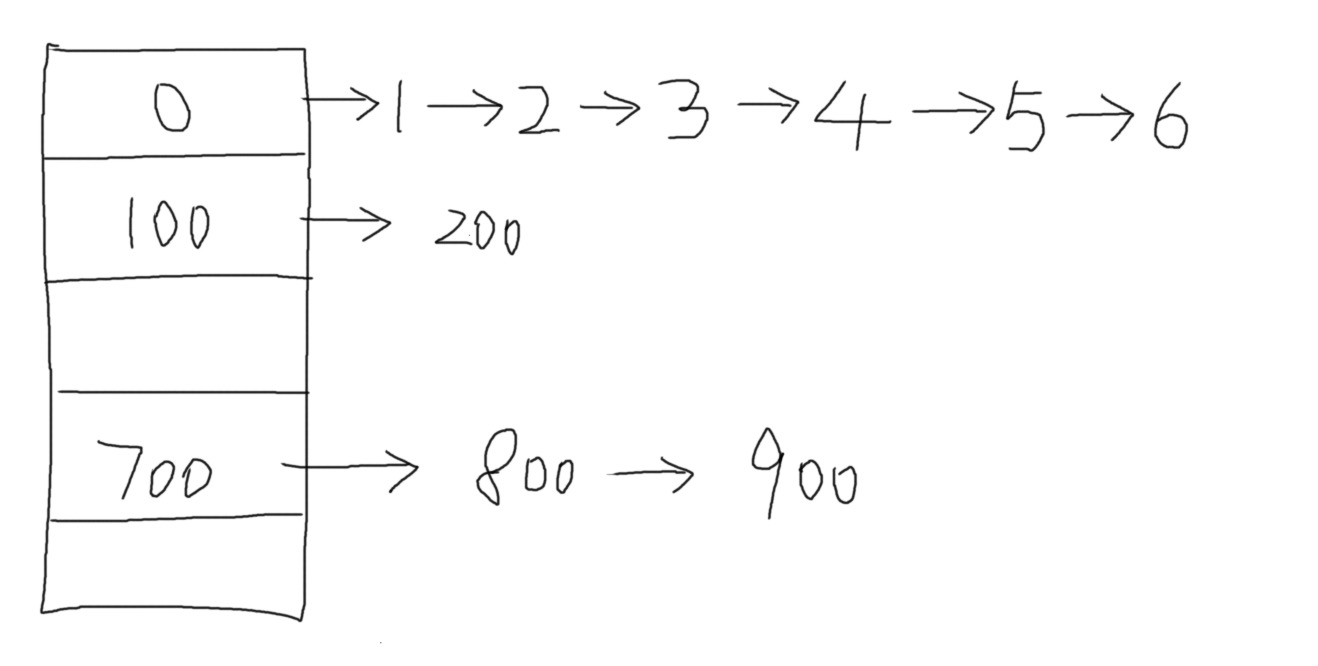 0 → 1 → 2 → 3 → 4 → 5 → 6
100 → 200
700 → 800 → 900